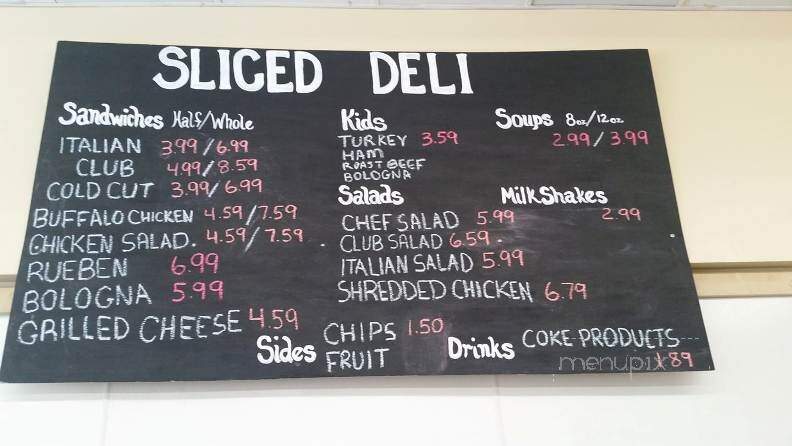 SLICED DELI
Sandwiches Half/Whole
ITALIAN 3.99/6.99
CLUB 4.99/8.59
COLD CUT 3.99/6.99
BUFFALO CHICKEN 4.59/7.59
CHICKEN SALAD. 4.59/7.59
RUEBEN 6.99
BOLOGNA 5.99
GRILLED CHEESE 4.59
Kids
TURKEY 3.59
HAM
ROAST BEEF
BOLOGNA
Soups 8oz/12oz
2.99/3.99
Salads
CHEF SALAD 5.99
CLUB SALAD 6.59
ITALIAN SALAD 5.99
SHREDDED CHICKEN 6.79
MilkShakes
2.99
Sides
CHIPS 1.50
FRUIT
Drinks
COKE PRODUCTS----
1.89
menupix